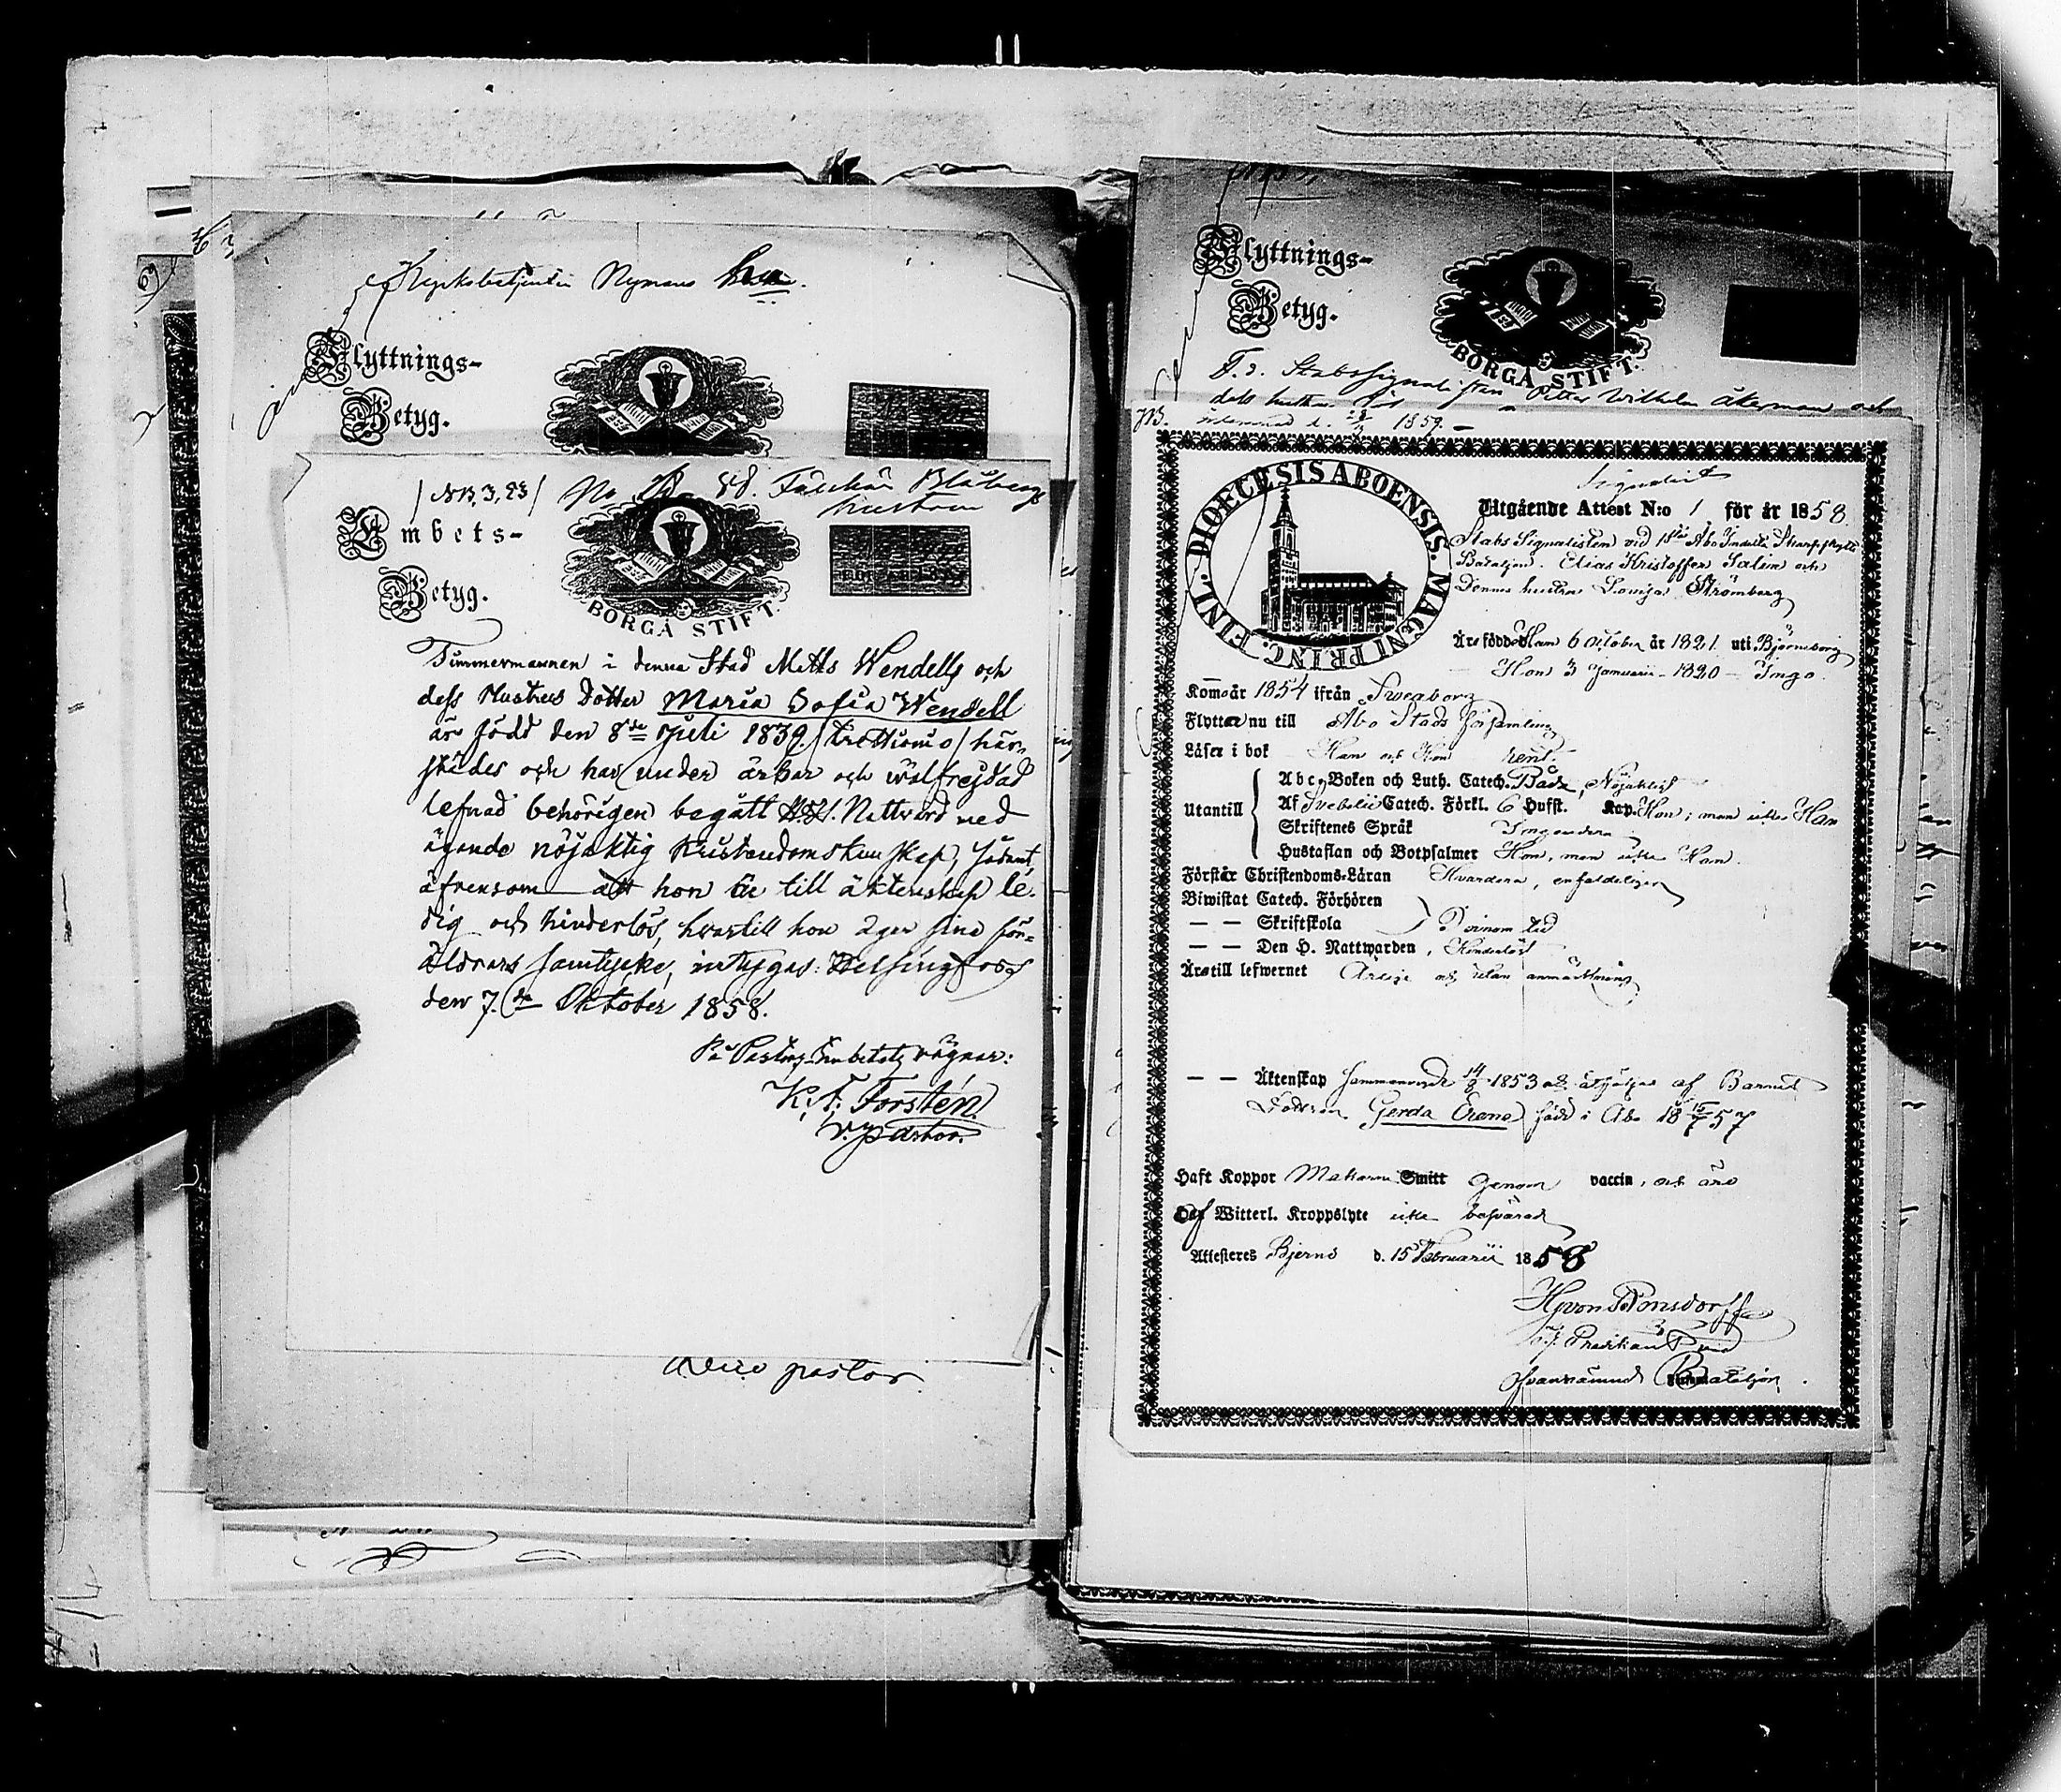 Nymans
Flyttnings-
Betyg.
No 58.
hustrun
Embets-
Betyg.
BORGÅ STIFT.
Timmermannen i denna Stad Matts Wendells och
dess Hustrus Dotter Maria Sofia Wendell
är född den 8de Juli 1839 /trettionio/ här-
städes och har under ärbar och wälfrejdad
lefnad behörigen begått H. H. Nattvard med
ägande nöjaktig Kristendomskunskap, jödemt,
äfvensom att hon är till äktenskap le-
dig och hinderlös, hvartill hon äger sina för-
äldrars samtycke, intygas: Helsingfors
den 7de Oktober 1858.
På Pastors-Embetets vägnar:
K. F. Forstén
v. pastor.
pastor
Flyttnings-
Betyg.
BORGÅ STIFT.
F. d. Stabssignalisten Petter Wilhelm Åkerman och
dess hustru
1859.
DIOECESIS ABOENSIS. MAGNI PRINC. FINL.
Signalist
Utgående Attest N:o 1 för år 1858
Stabs Signalisten vid 1sta Åbo Indelta Skarpskytte
Bataljon. Elias Kristoffer Salin och
Dennes hustru Lovisa Strömberg
Äro födde Han 6 October år 1821 uti Björneborg
Hon 3 Januarii 1820 Ingo.
Kom år 1854 ifrån Sweaborg
Flytta nu till Åbo Stads församling
Läser i bok Han och Hon rent.
Utantill
Abc-Boken och Luth. Catech. Både, Nöjaktigt
Af Svebelii Catech. Förkl. 6 Hufst. Kap. Hon; men icke Han
Skriftenes Språk Ingendera
Hustaflan och Botpsalmer Hon, men icke Han.
Förstår Christendoms-Läran Hvardera, enfaldeligen
Biwistat Catech. Förhören
— — Skriftskola
— — Den H. Nattwarden, Hinderlöst
Äro till lefwernet Ärliga och utan anmärkning
— — Äktenskap sammanvigde 14/8 1853 och åtföljas af Barnet
Dottren Gerda Irene född i Åbo 18 15/7 57
Haft Koppor Makarne Smitt genom vaccin, och äro
Af Witterl. Kroppslyte icke besvärad
Attesteras Bjerno d. 15 Februarii 1858
Hj von Bonsdorff
Bataljon.